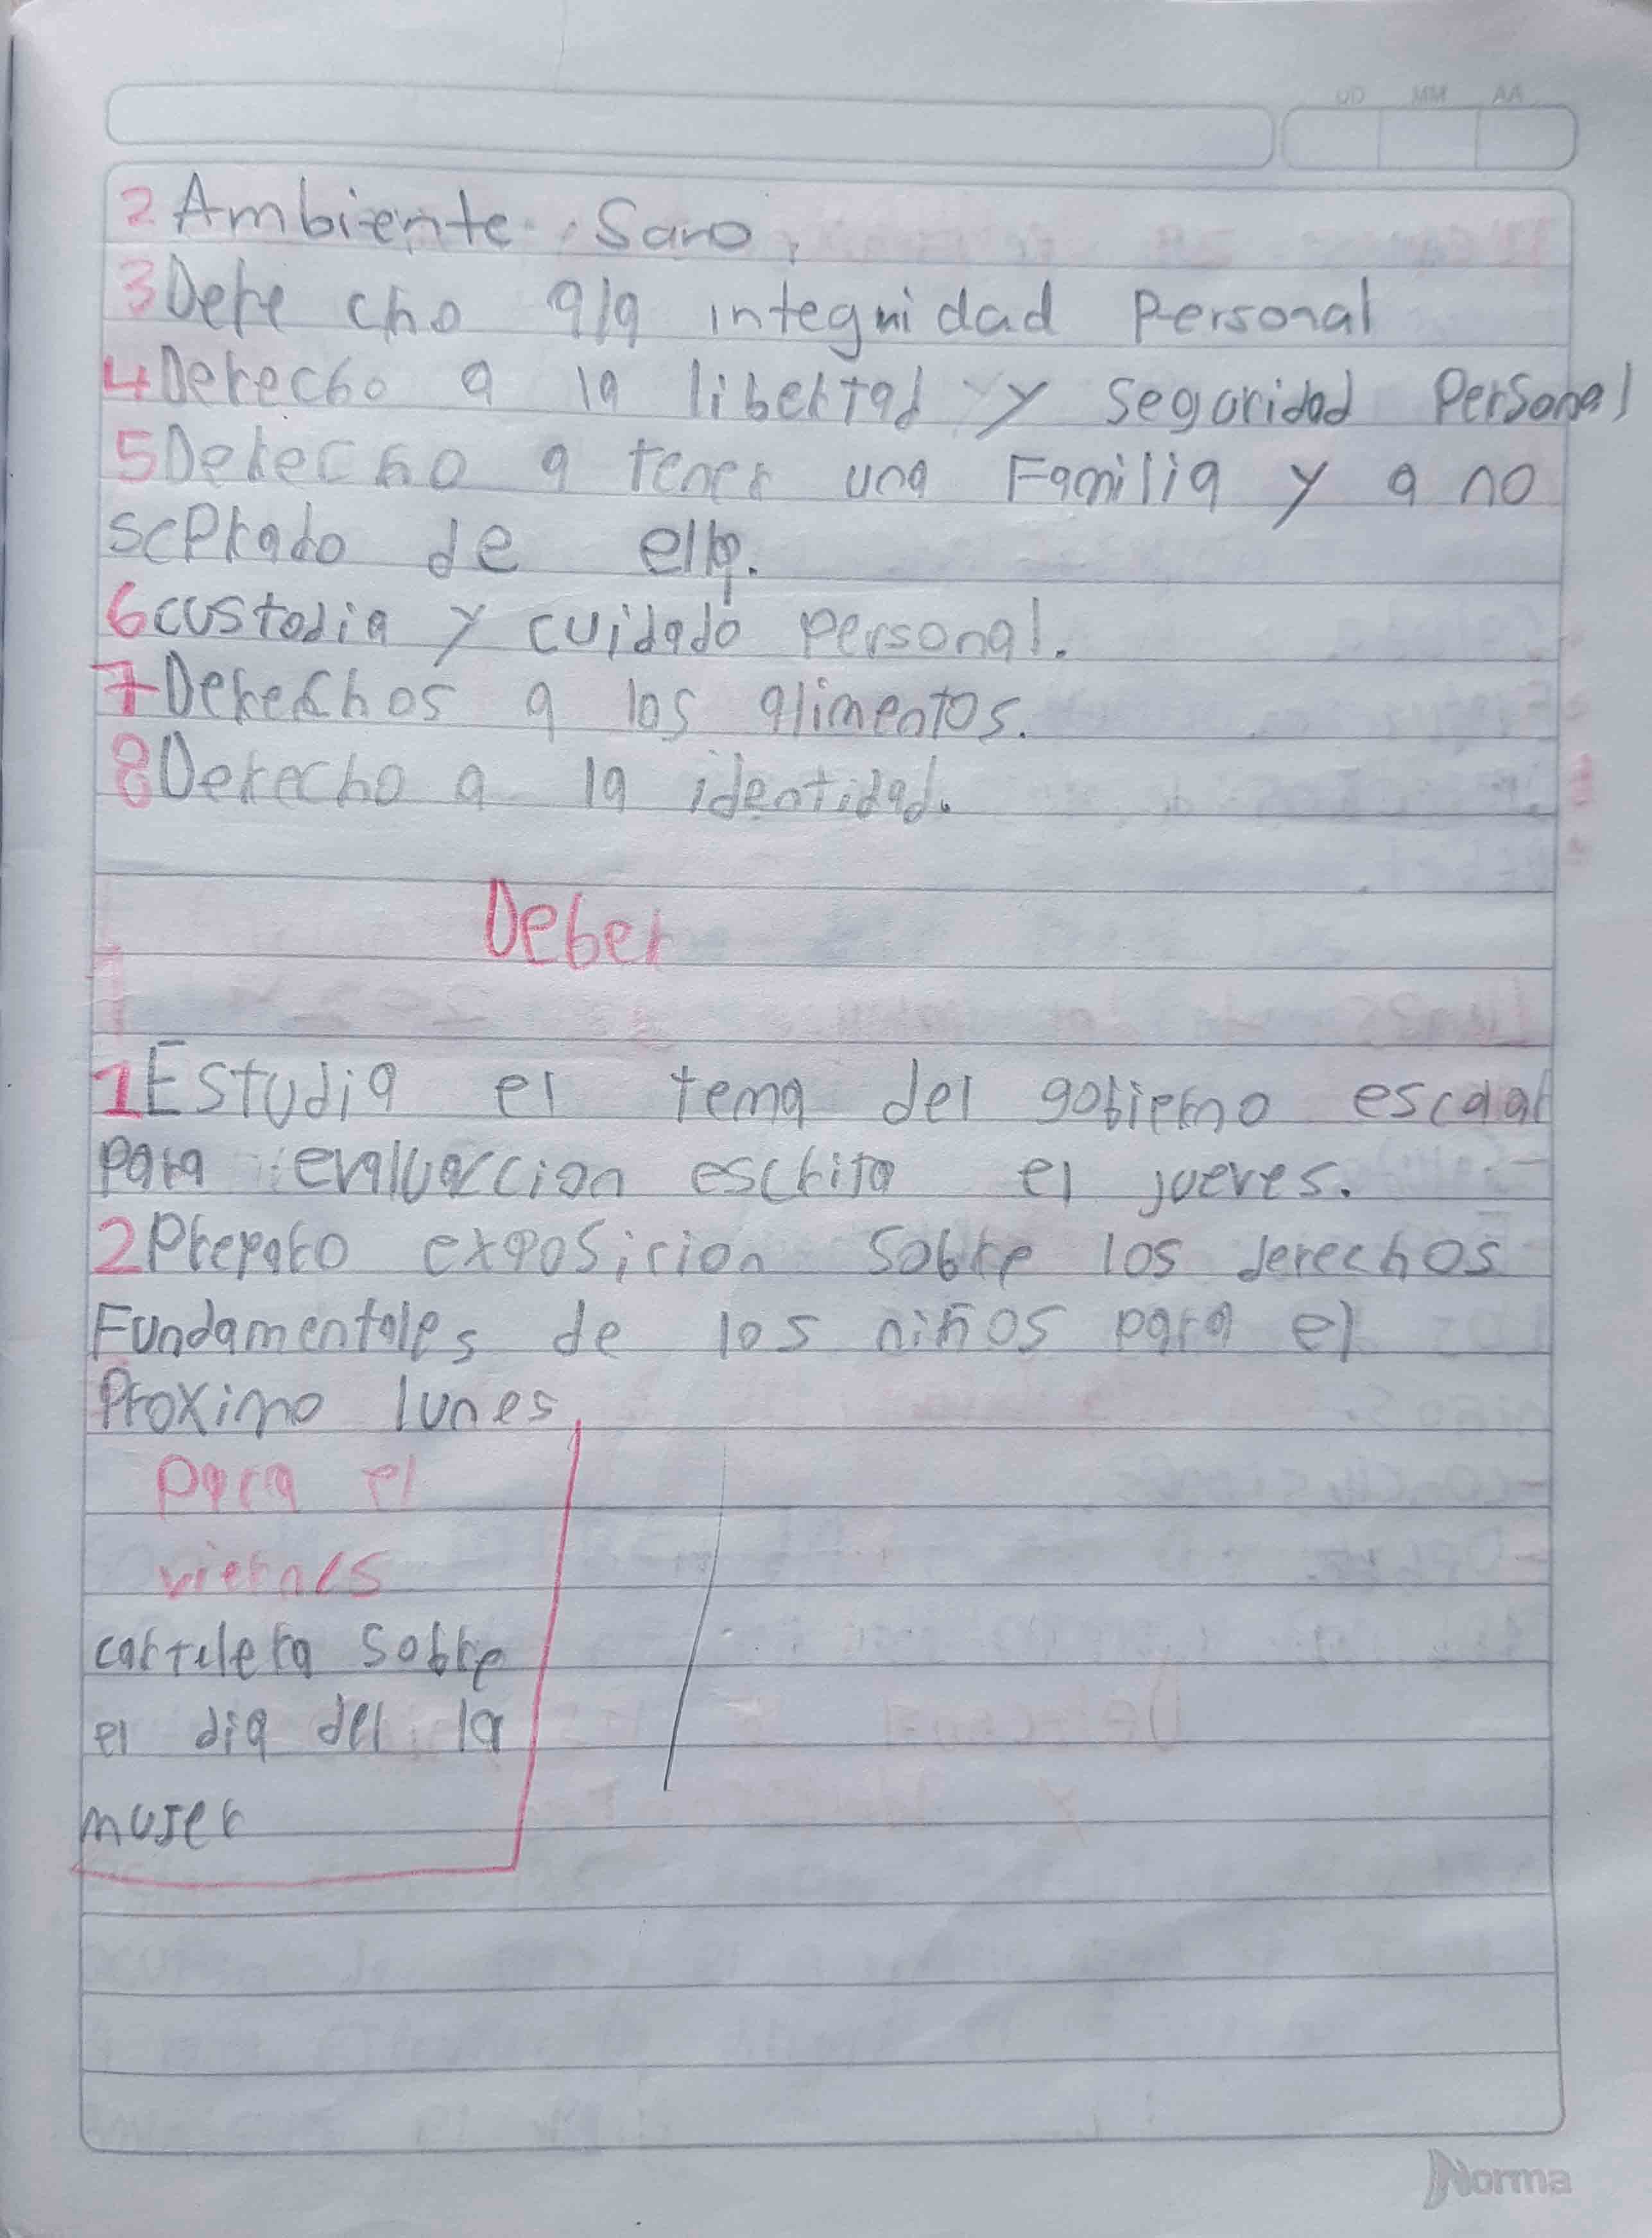 2 Ambiente Sano.
3 Derecho a la integridad Personal
4 Derecho a la libertad y seguridad Personal
5 Derecho a tener una Familia y a no
seprado de ella.
6 custodia y cuidado personal.
7 Derechos a los alimentos.
8 Derecho a la identidad.
Deber
1 Estudia el tema del gobierno escolar
para evaluaccion escrita el jueves.
2 Preparo exposicion Sobre los derechos
Fundamentales de los niños para el
Proximo lunes
para el
viernes
cartelera sobre
el dia del la
mujer
Norma